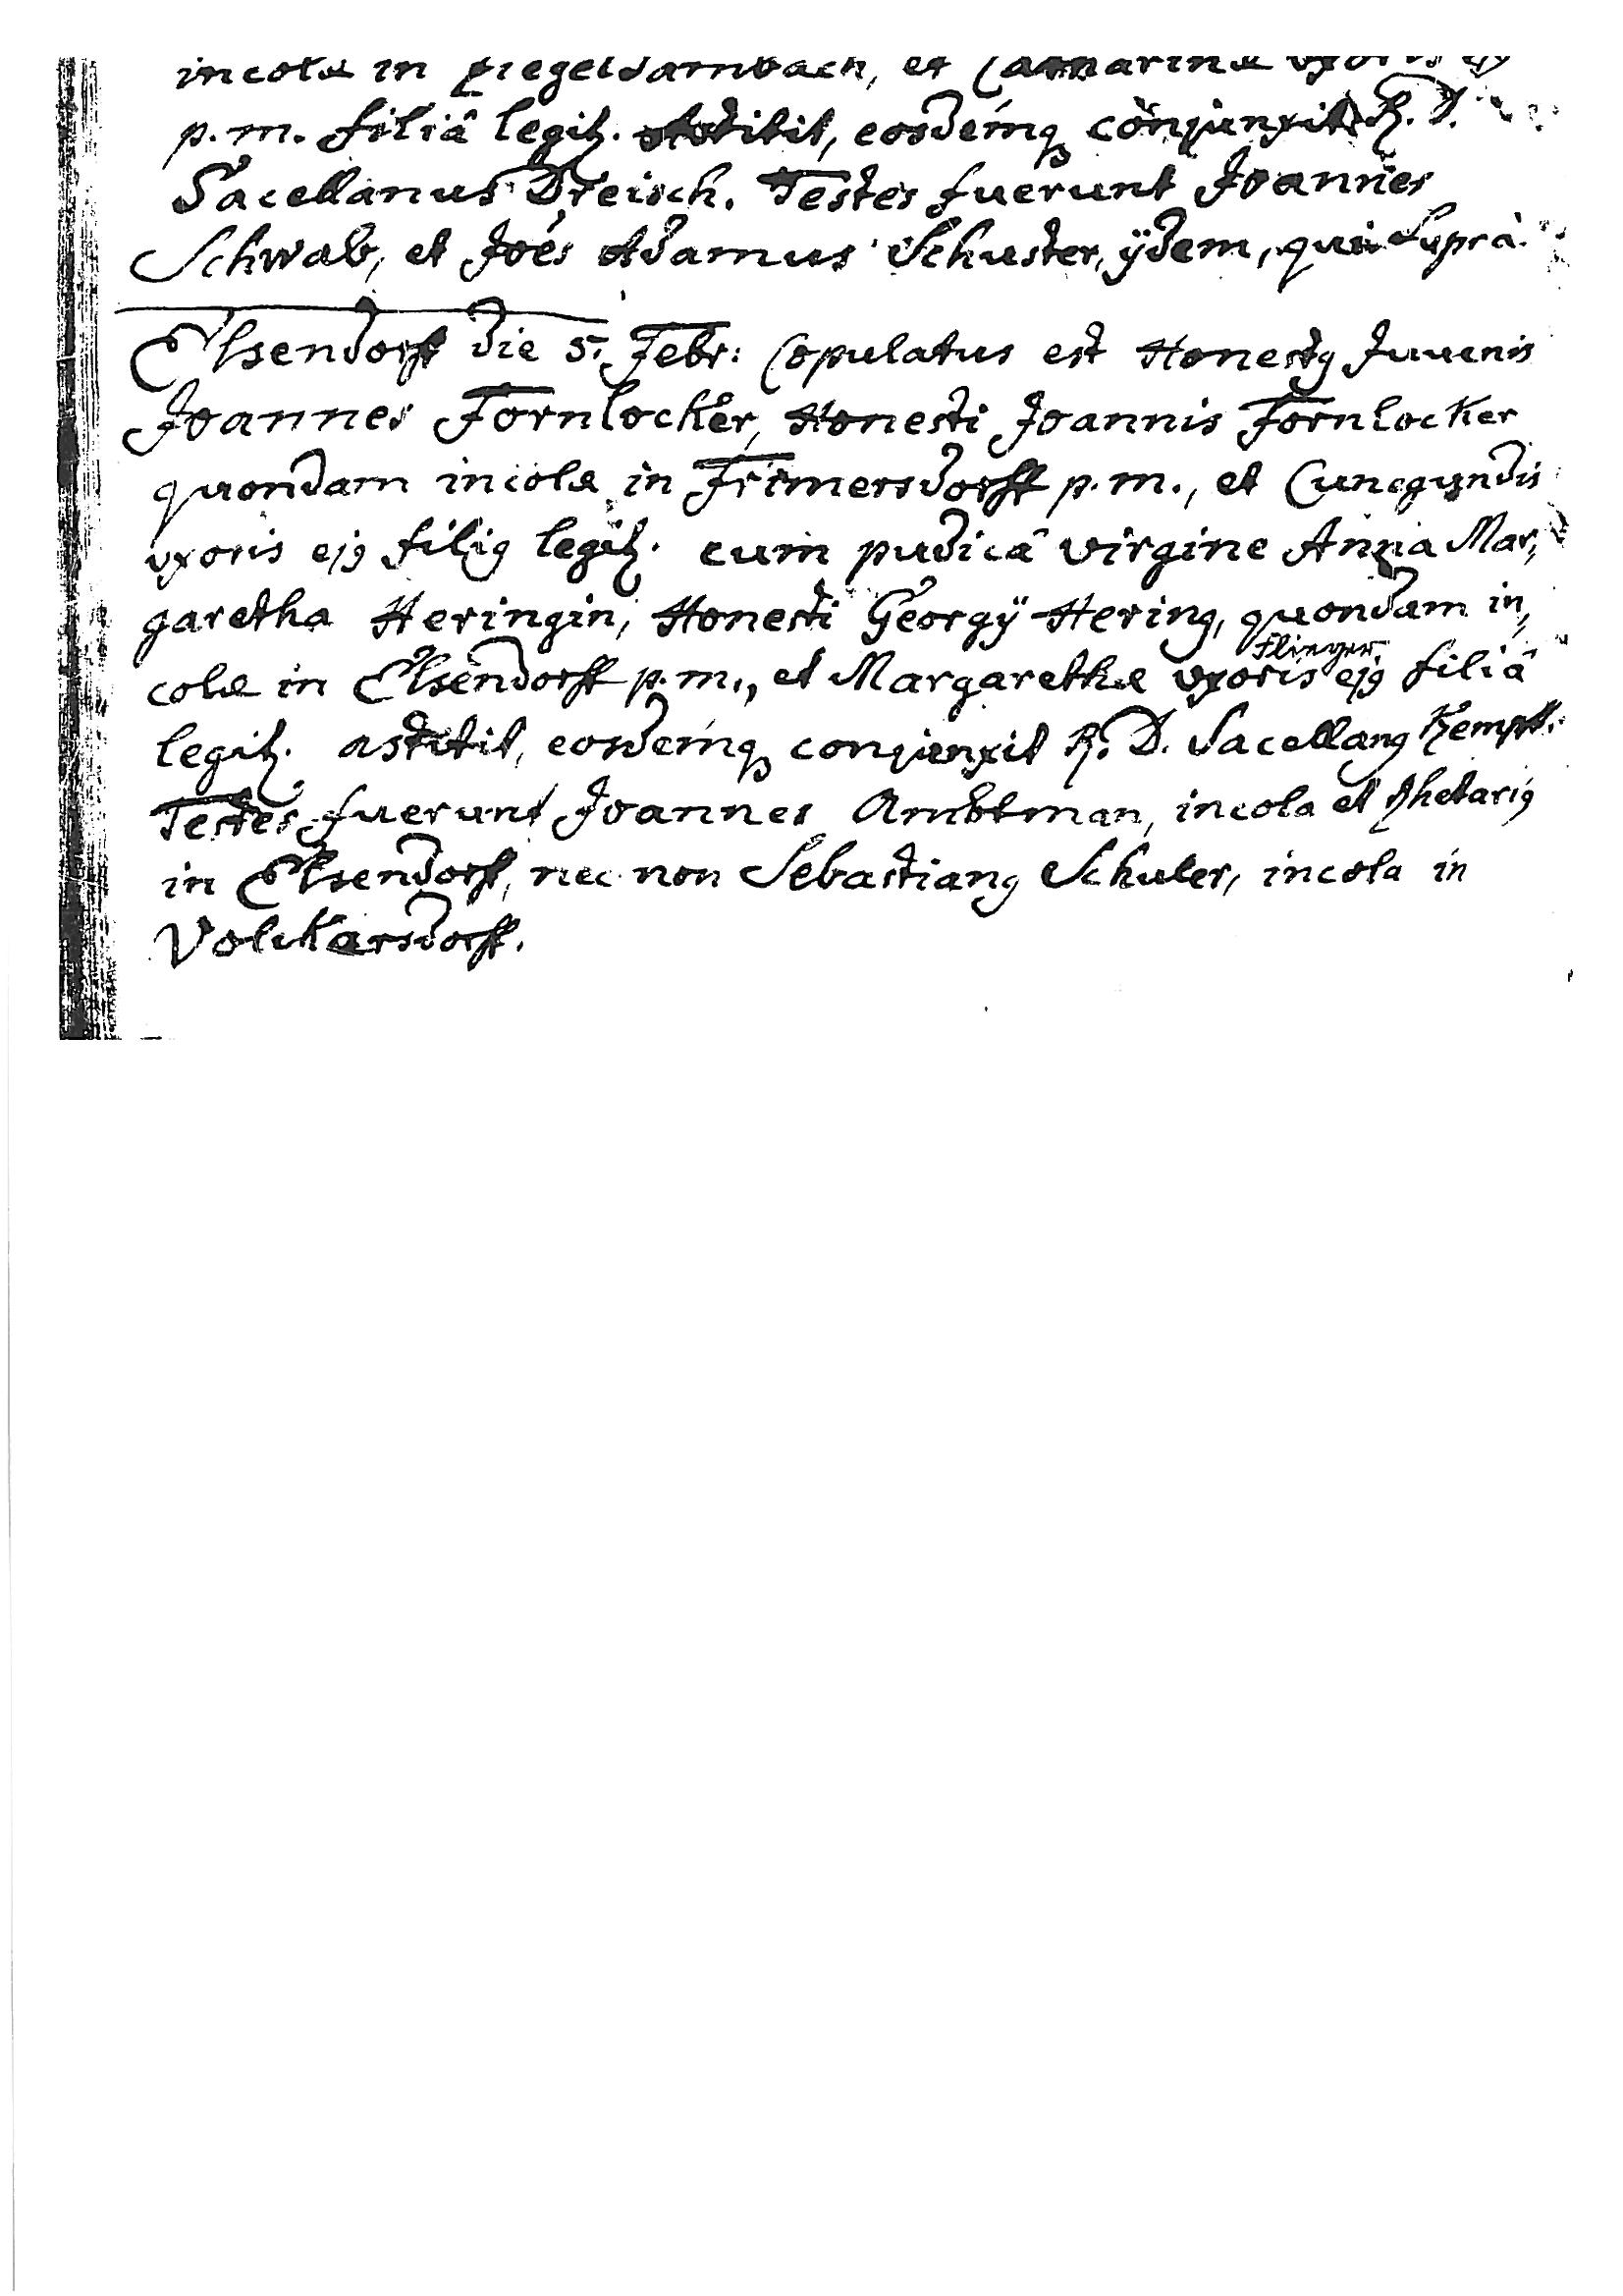 incolæ in Ziegelsambach, et Catharinæ vxoris ejꝰ
p. m. filiâ legit. Astitit, eosdemq3 conjunxit R. D.
Sacellanus Dreisch. Testes fuerunt Joannes
Schwab, et Joes Adamus Schuster, ÿdem, qui Supra.
Elsendorff die 5. Febr: Copulatus est Honestꝰ Juuenis
Joannes Fornlocker, Honesti Joannis Fornlocker
quondam incolæ in Frimersdorff p. m., et Cunegundis
vxoris ejꝰ filiꝰ legit. cum pudicâ virgine Anna Mar,
garetha Heringin, Honesti Georgÿ Hering, quondam in,
Flieger
colæ in Elsendorff p. m., et Margarethæ vxoris ejꝰ filiâ
legit. astitit, eosdemq3 conjunxit R. D. Sacellanꝰ
Testes fuerunt Joannes Ambtman, incola et
in Elsendorff, nec non Sebastianꝰ Schuler, incola in
Volckarsdorff.